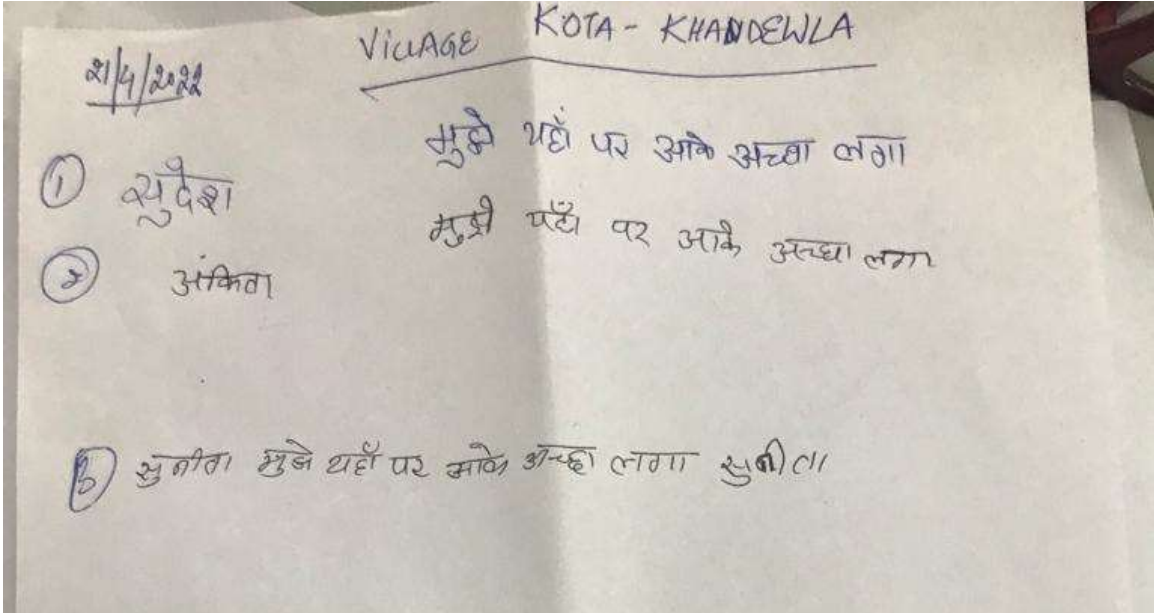 VILLAGE KOTA - KHANDEWLA
21/4/2022
① सुदेश मुझे यहाँ पर आके अच्छा लगा
② अंकिता मुझे यहाँ पर आके अच्छा लगा
③ सुनीता मुझे यहाँ पर आके अच्छा लगा सुनीता